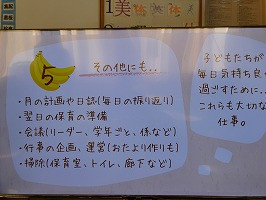 1美
5
その他にも..
・月の計画や日誌(毎日の振り返り)
・翌日の保育の準備
・会議(リーダー、学年ごと、係など)
・行事の企画、運営(おたより作りも)
・掃除(保育室、トイレ、廊下など)
子どもたちが
毎日気持ち良く
過ごすために..
これらも大切な
仕事。